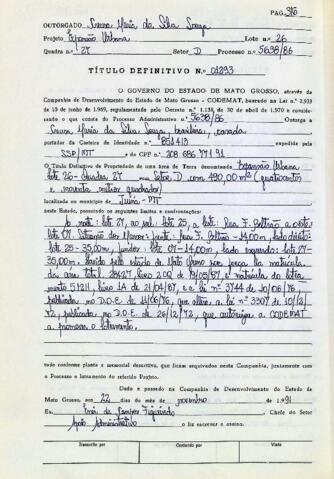 PAG. 310
OUTORGADO Creusa Maria da Silva Souza
Projeto Expansão Urbana Lote n.º 26
Quadra n.º 27 Setor D Processo n.º 5638/86
TÍTULO DEFINITIVO N.º 01293
O GOVERNO DO ESTADO DE MATO GROSSO, através da
Companhia de Desenvolvimento do Estado de Mato Grosso - CODEMAT, baseado na Lei n.º 2.933
13 de junho de 1969, regulamentada pelo Decreto n.º 1.138, de 30 de abril de 1970 e considerando
o que consta do Processo Administrativo n.º 5638/86 Outorga a
Creusa Maria da Silva Souza, brasileira, casada
portador da Carteira de Identidade n.º 851413 expedida pela
SSP/MT e do CPF n.º 208 686 771 91
O Título Definitivo de Propriedade de uma Área de Terra denominada Expansão Urbana
lote 26 - Quadra 27 Setor D com 490,00 m² (quatrocentos
e noventa metros quadrados)
localizada no município de Juína - MT
neste Estado, possuindo os seguintes limites e confrontações:
norte: lote 27, ao sul: lote 25, a leste: Rua F. Beltrão a oeste:
lote 07. frente: Rua F. Beltrão - 14,00m, lado direito:
lote 25 - 35,00m, fundos: lote 07 - 14,00m, lado esquerdo: lote 27 -
35,00m. Mato Grosso por força da matrícula
da área total 26427, livro 2 de 19/05/87 e matrícula do lotea
mento 51211, livro 1A de 21/04/87, e a lei nº 3744 de 10/06/76,
publicada no D.O.E. de 11/06/76, que altera a lei nº 3307 de 10/12/
72, publicada no D.O.E. de 26/12/72, que autoriza a CODEMAT
a promover o loteamento.
tudo conforme planta e memorial descritivo, que ficam arquivados nesta Companhia, juntamente com
o Processo e loteamento do referido Projeto.
Dado e passado na Companhia de Desenvolvimento do Estado de
Mato Grosso, aos 22 dias do mês de novembro de 1991
Eu, Figueiredo Chefe do Setor
Apoio Administrativo o fiz escrever e assino.
Transcrito por Conferido por Visto